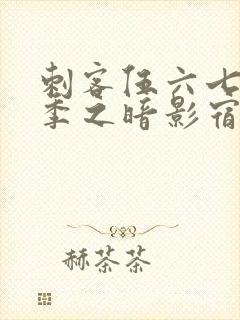 刺客伍六七
季之暗影宿
赫茶茶